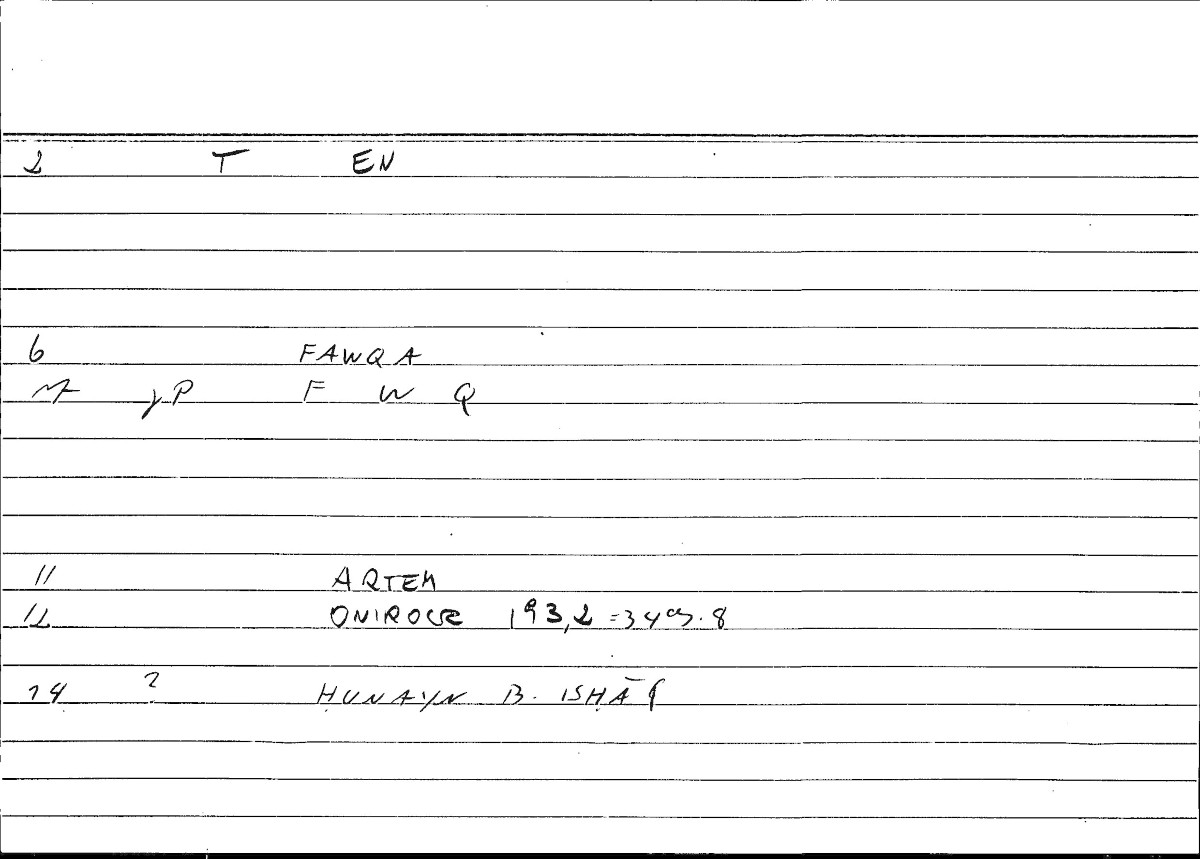 2 T EN
6 FAWQA
jP F W Q
11 ARTEM
12 ONIROCR 193,2 = 349.8
14 ? ḤUNAYN B. ISḤĀQ